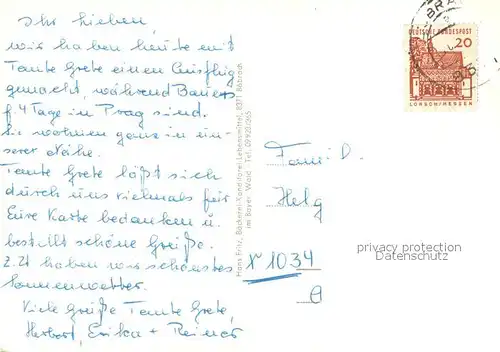 Ihr Lieben
wir haben heute mit
Tante Grete einen Ausflug
gemacht, während Bauers
f. 4 Tage in Prag sind.
Sie wohnen ganz in un-
serer Nähe.
Tante Grete läßt sich
durch uns vielmals für
Eure Karte bedanken u.
bestellt schöne Grüße.
z. Zt haben wir schönstes
Sonnenwetter.
Viele Grüße Tante Grete,
Herbert, Erika + Reiner
Hans Fritz, Bäckerei-Konditorei-Lebensmittel, 8371
im Bayer. Wald, Tel.
DEUTSCHE BUNDESPOST
20
LORSCH/HESSEN
Famil.
Helg
privacy protection
Datenschutz
1034